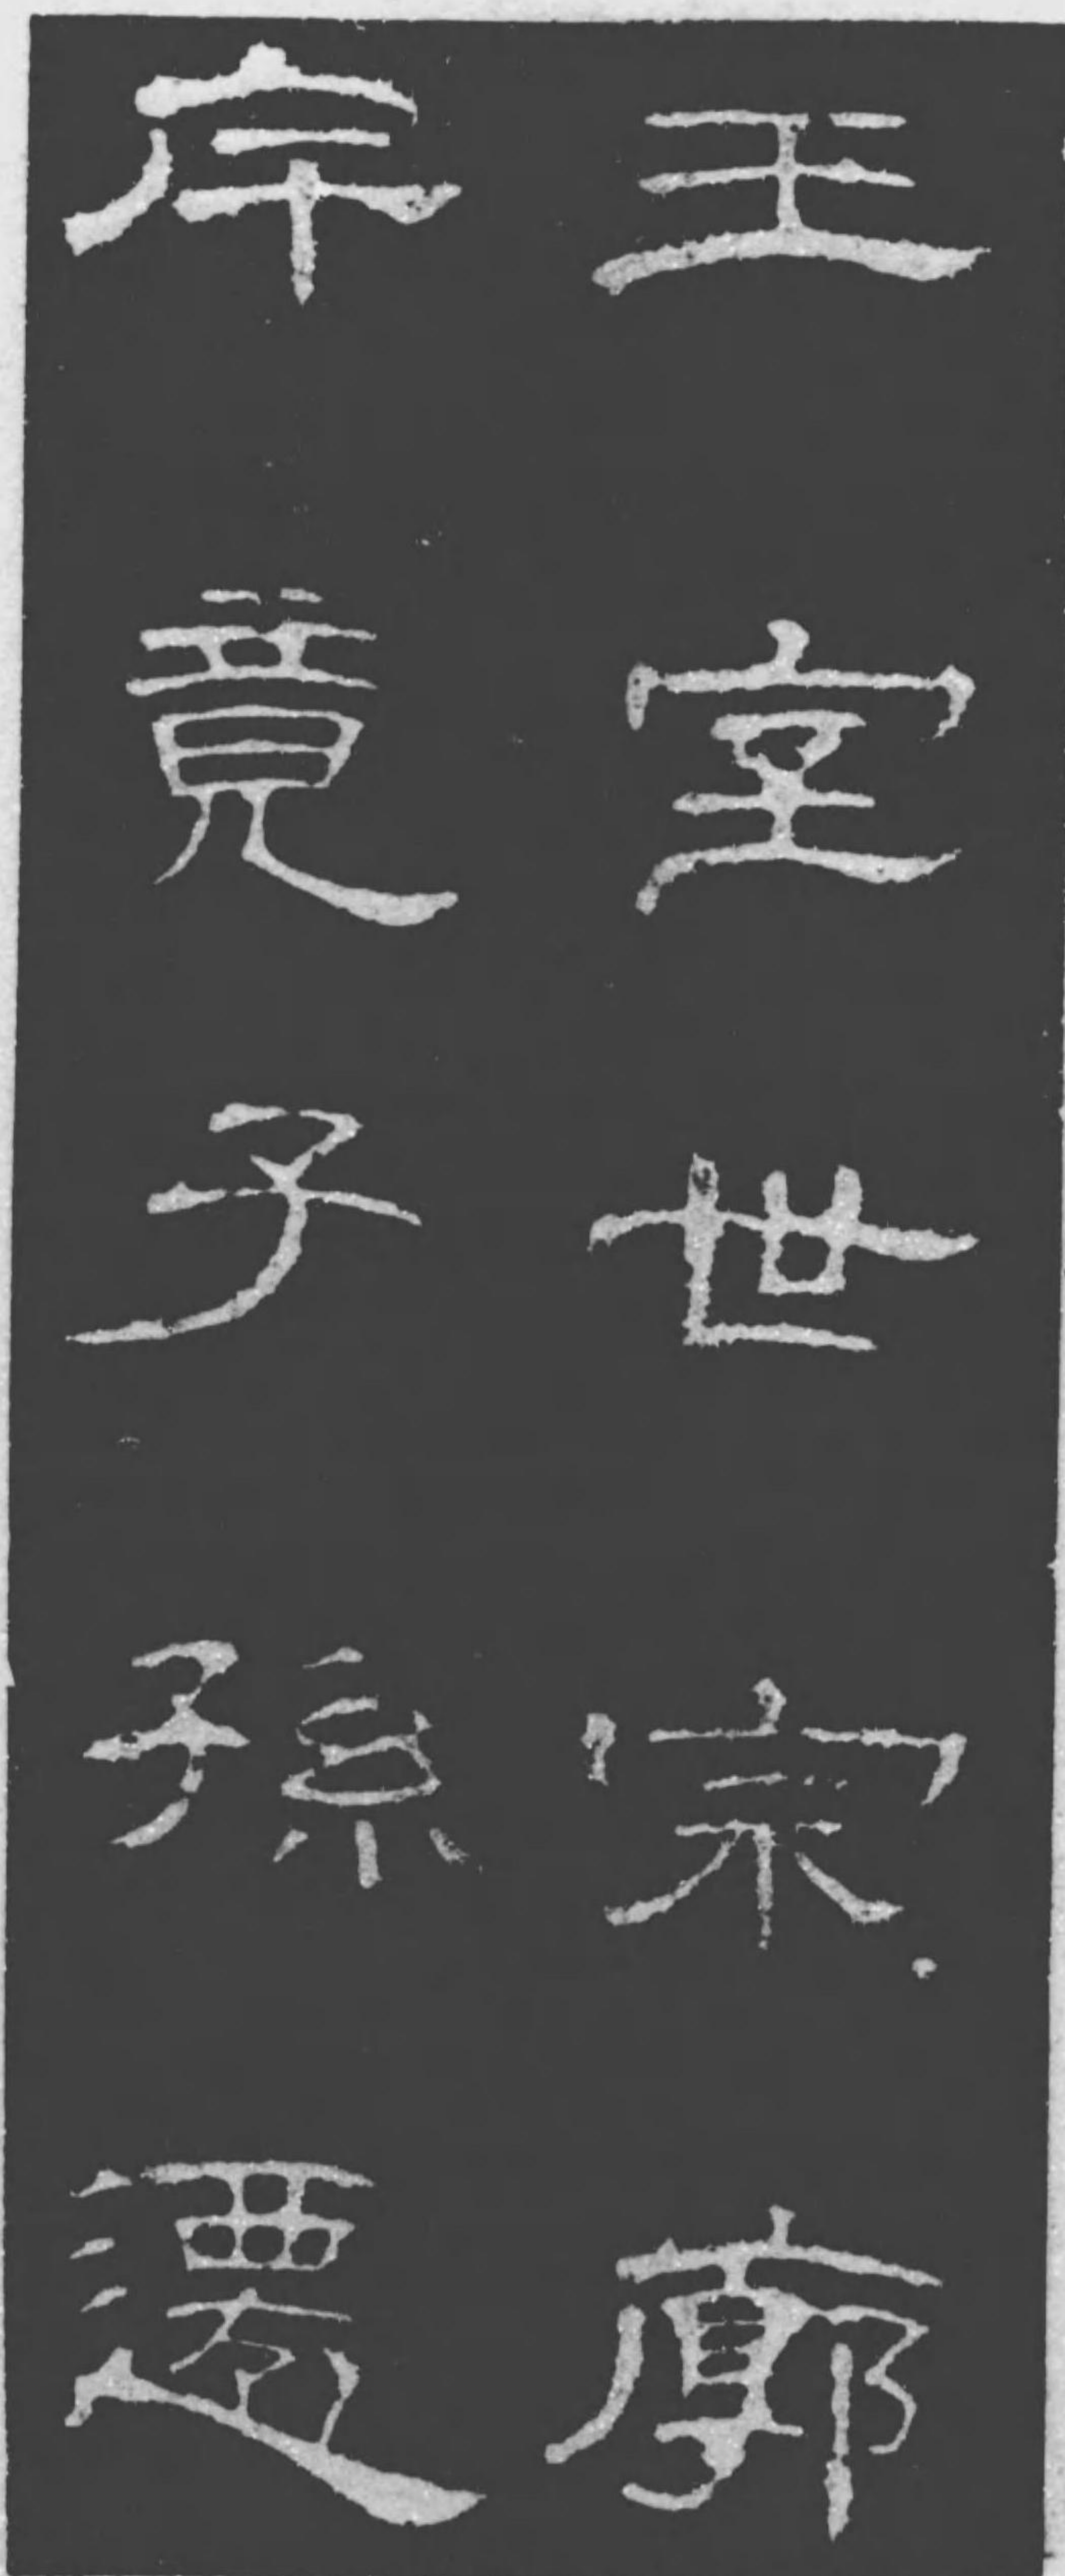 王室世宗廓
土竟子孫遷